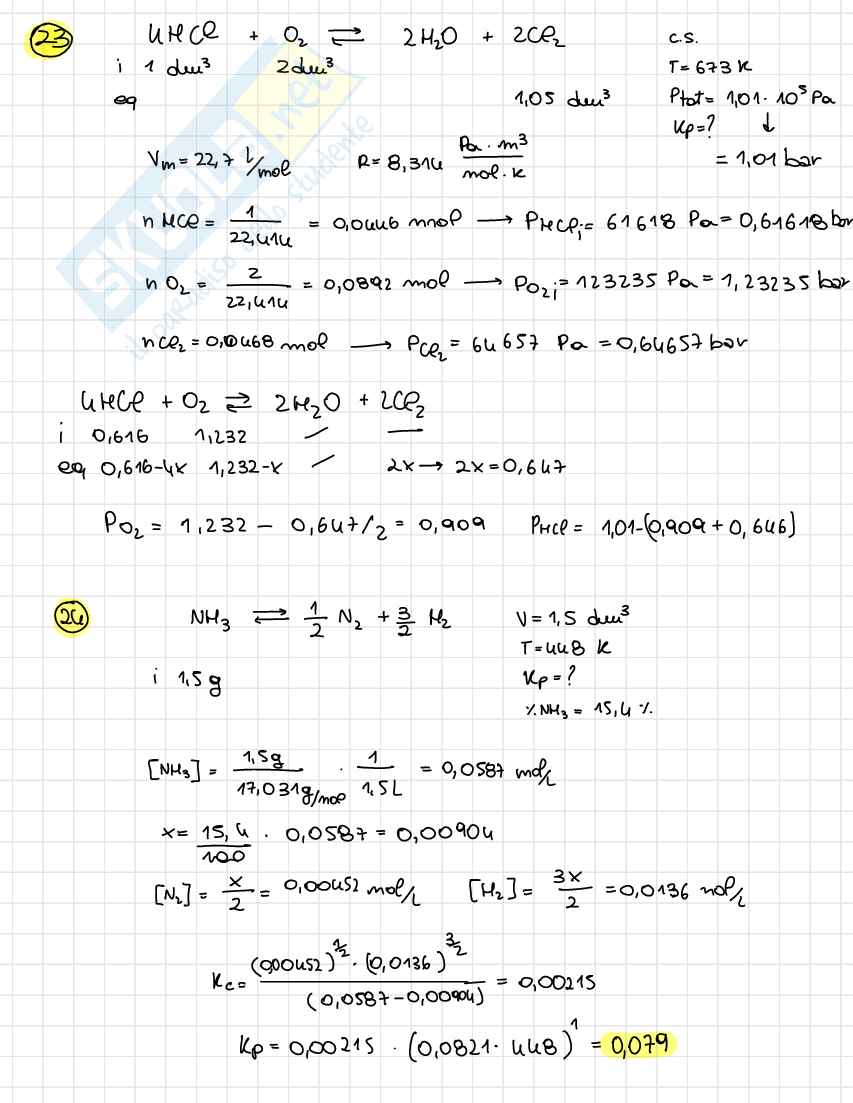 23 4HCl + O2 ⇌ 2H2O + 2Cl2 c.s.
i 1 dm³ 2dm³ T=673 K
eq 1,05 dm³ Ptot= 1,01·10⁵ Pa
Kp=? ↓
Vm=22,7 l/mol R=8,314 Pa·m³/mol·K = 1,01 bar
n HCl = 1/22,414 = 0,0446 mol → PHCl,i= 61618 Pa=0,61618 bar
n O2 = 2/22,414 = 0,0892 mol → PO2,i=123235 Pa=1,23235 bar
nCl2=0,0468 mol → PCl2= 64657 Pa=0,64657 bar
4HCl + O2 ⇌ 2H2O + 2Cl2
i 0,616 1,232 / —
eq 0,616-4x 1,232-x / 2x→ 2x=0,647
PO2 = 1,232 - 0,647/2 = 0,909 PHCl = 1,01-(0,909+0,646)
24 NH3 ⇌ 1/2 N2 + 3/2 H2 V=1,5 dm³
T=448 K
i 1,5g Kp=?
%NH3 = 15,4 %
[NH3]= 1,5g/17,031g/mol · 1/1,5L = 0,0587 mol/L
x= 15,4/100 · 0,0587=0,00904
[N2]= x/2 = 0,00452 mol/L [H2]= 3x/2 =0,0136 mol/L
Kc= (0,00452)^1/2·(0,0136)^3/2/(0,0587-0,00904) = 0,00215
Kp=0,00215 · (0,0821·448)^1 = 0,079
SKUOLA.net
il paradiso dello studente